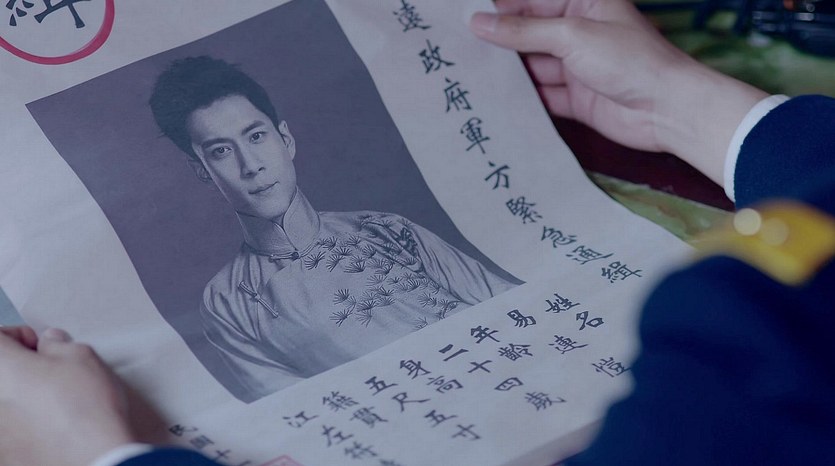 遠政府軍方緊急通緝
姓名
易連愷
年齡
二十四歲
身高
五尺五寸
籍貫
江左符
民國十
緝